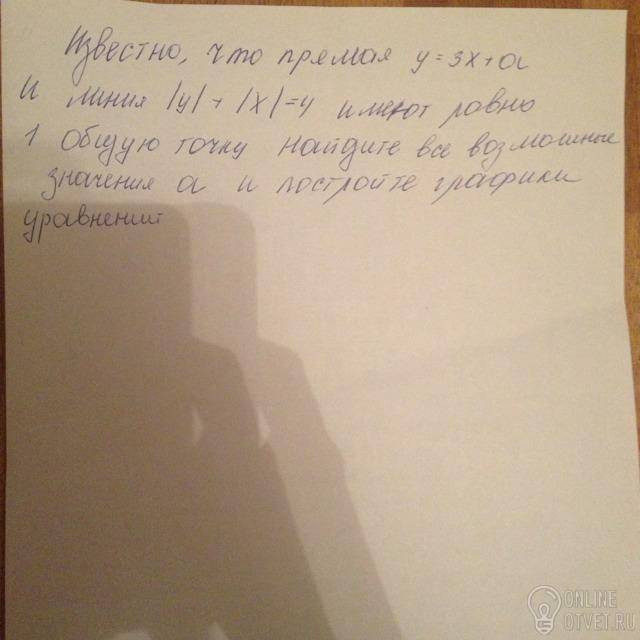 Известно, что прямая y=3x+a
и линия |y|+|x|=4 имеют ровно
1 общую точку найдите все возможные
значения a и постройте графики
уравнений
ONLINE
OTVET.RU